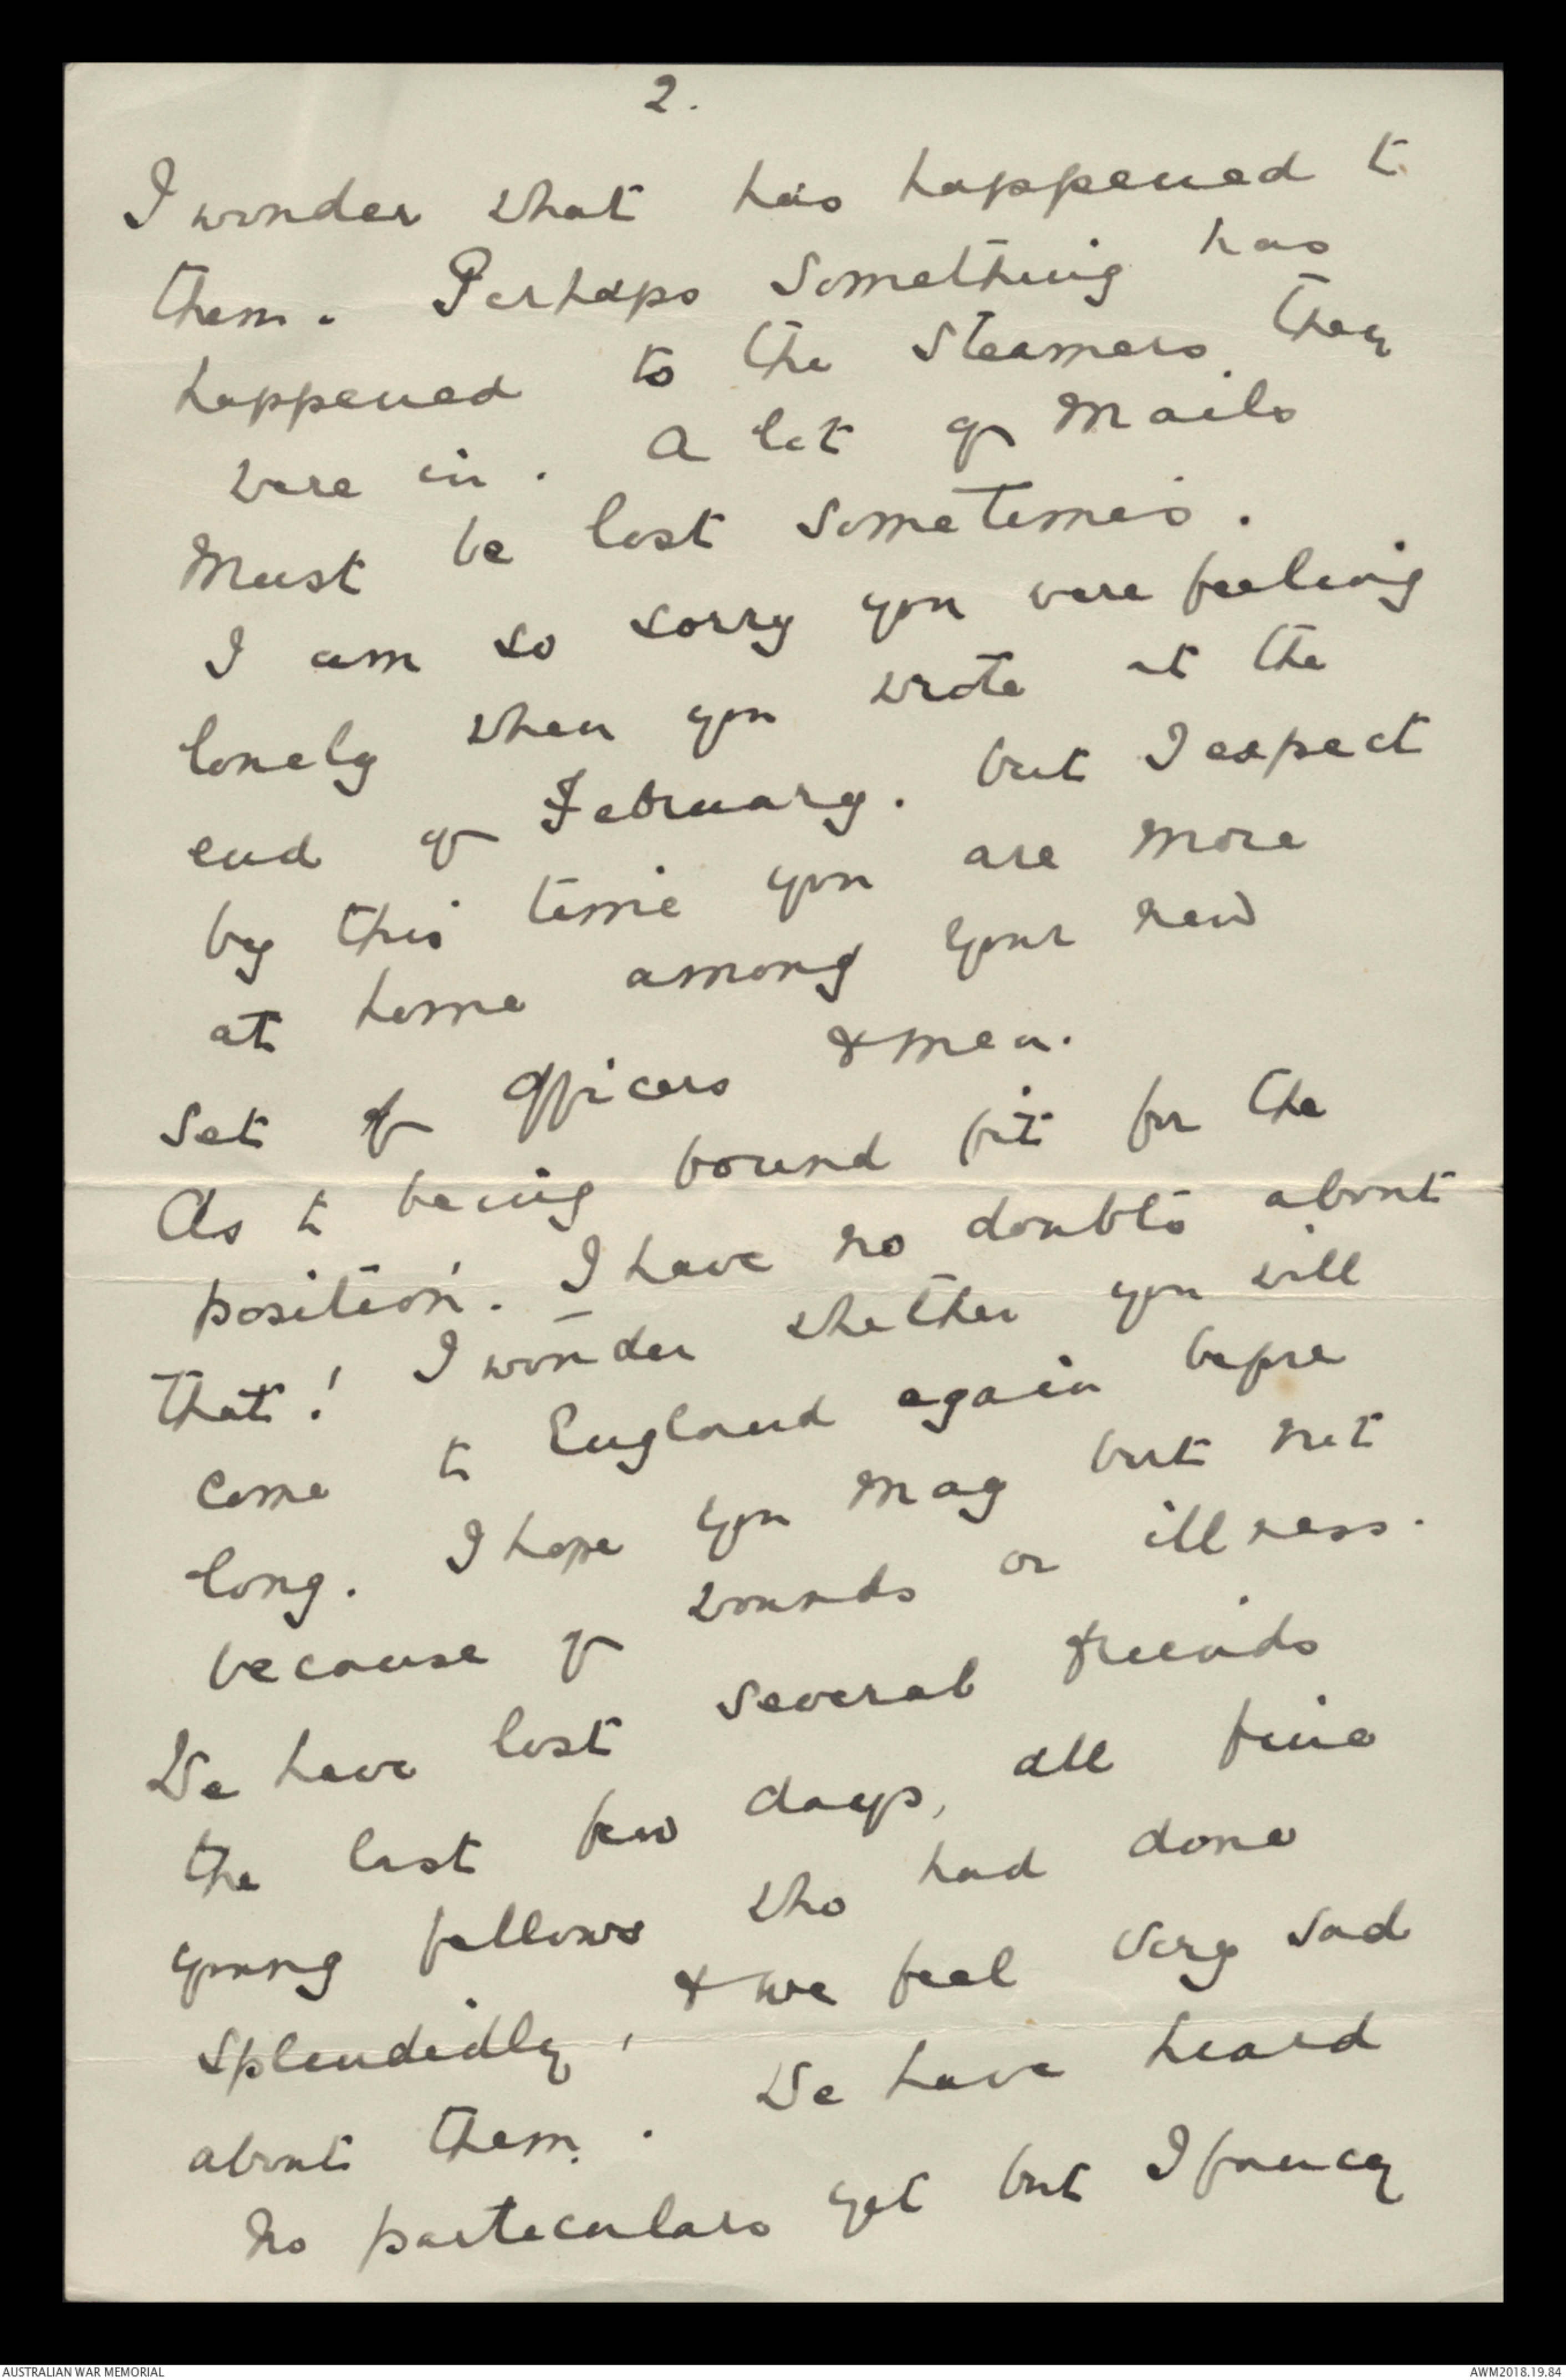 2.
I wonder what has happened to
them. Perhaps something has
happened to the steamers they
were in. A lot of mails
must be lost sometimes.
I am so sorry you were feeling
lonely when you wrote at the
end of February. but I expect
by this time you are more
at home among your new
set of officers & men.
As to being found fit for the
position. I have no doubts about
that! I wonder whether you will
come to England again before
long. I hope you may but not
because of wounds or illness.
We have lost several friends
the last few days, all fine
young fellows who had done
splendidly, & we feel very sad
about them. We have heard
no particulars yet but I fancy
AUSTRALIAN WAR MEMORIAL
AWM2018.19.84